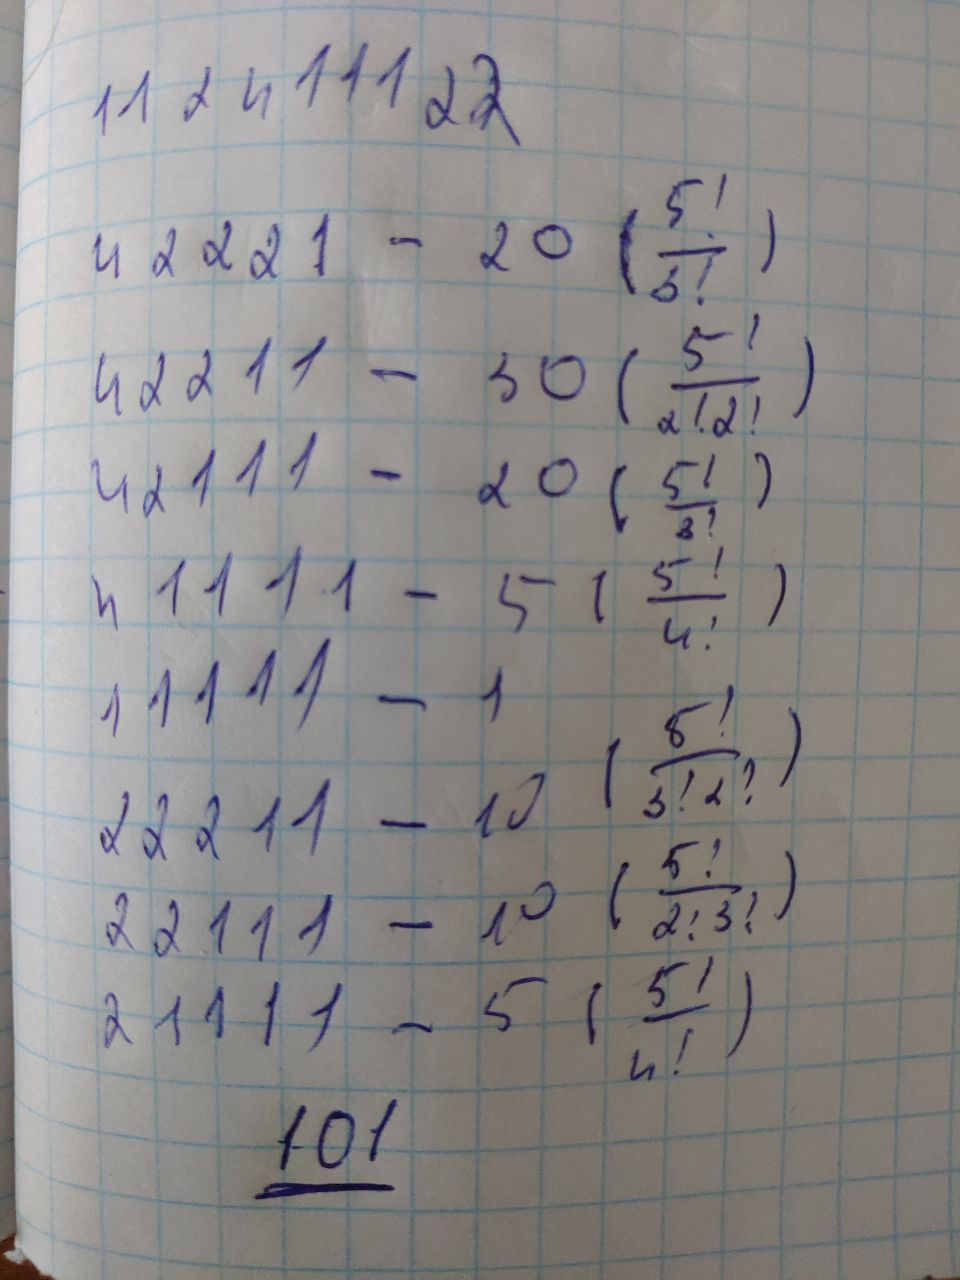 11 2 4 111 22
42221 - 20 (5!/3!)
42211 - 30 (5!/2!2!)
42111 - 20 (5!/3!)
41111 - 5 (5!/4!)
11111 - 1
22211 - 10 (5!/3!2!)
22111 - 10 (5!/2!3!)
21111 - 5 (5!/4!)
101